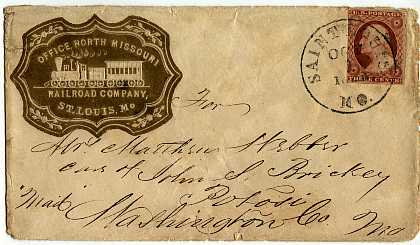 OFFICE NORTH MISSOURI
RAILROAD COMPANY,
ST. LOUIS, Mo
SAINT
OC
MO.
U.S. POSTAGE
THREE CENTS
For
Mr Matthew Webber
care of John S Brickey
Potosi
"Mail" Washington Co Mo